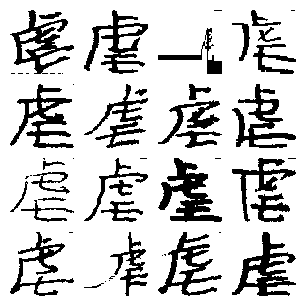 虐虐虐
虐虐虐虐
虐虐虐虐
虐虐虐虐